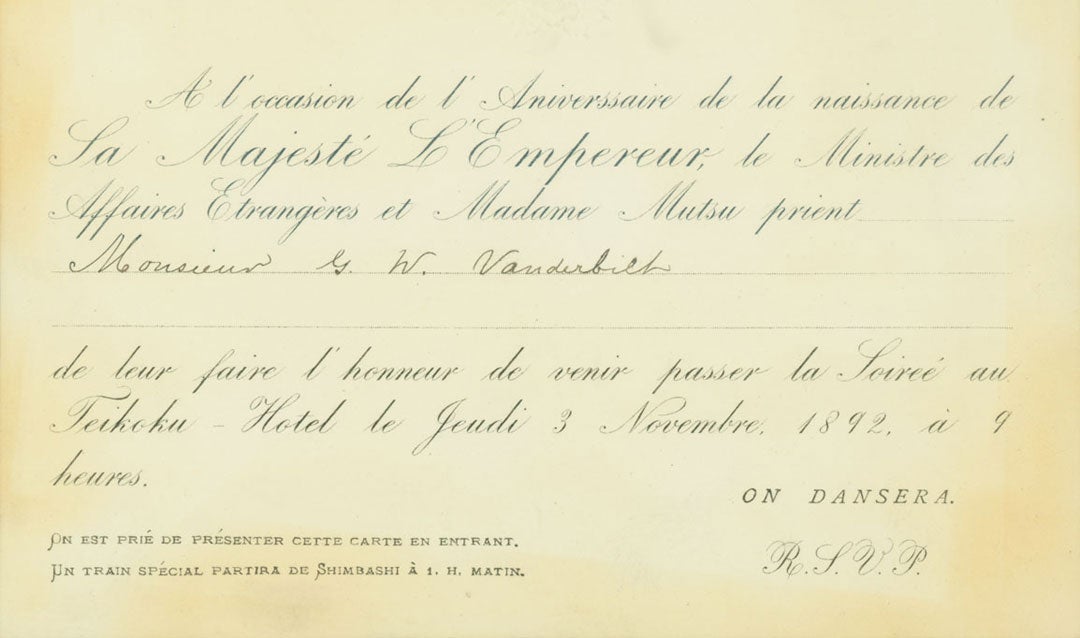 A l'occasion de l'Aniverssaire de la naissance de
Sa Majesté L'Empereur, le Ministre des
Affaires Etrangères et Madame Mutsu prient
Monsieur G. W. Vanderbilt
de leur faire l'honneur de venir passer la Soireé au
Teikoku - Hotel le Jeudi 3 Novembre, 1892, à 9
heures.
ON DANSERA.
ON EST PRIÉ DE PRÉSENTER CETTE CARTE EN ENTRANT.
UN TRAIN SPÉCIAL PARTIRA DE SHIMBASHI À 1. H. MATIN.
R. S. V. P.